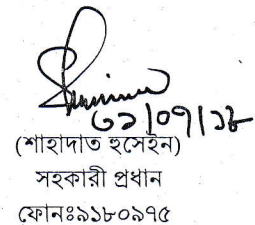 ৩১/০৭/১৮
(শাহাদাত হুসেইন)
সহকারী প্রধান
ফোনঃ৯১৮০৯৭৫